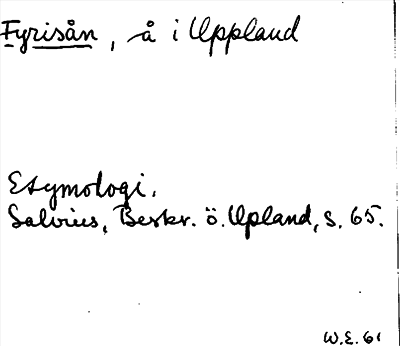 Fyrisån, å i Uppland
Etymologi.
Salvius, Beskr. ö. Upland, s. 65.
W.E. 61